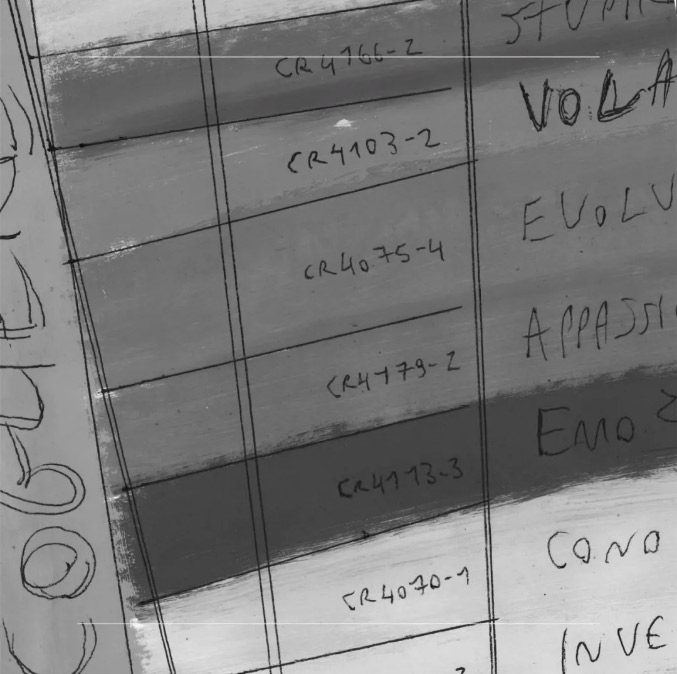 CR4166-2 STUPI
CR4103-2 VOLA
CR4075-4 EVOLV
CR4179-2 APPASSI
CR4113-3 EMOZ
CR4070-1 COND
INVE
COGLIERE